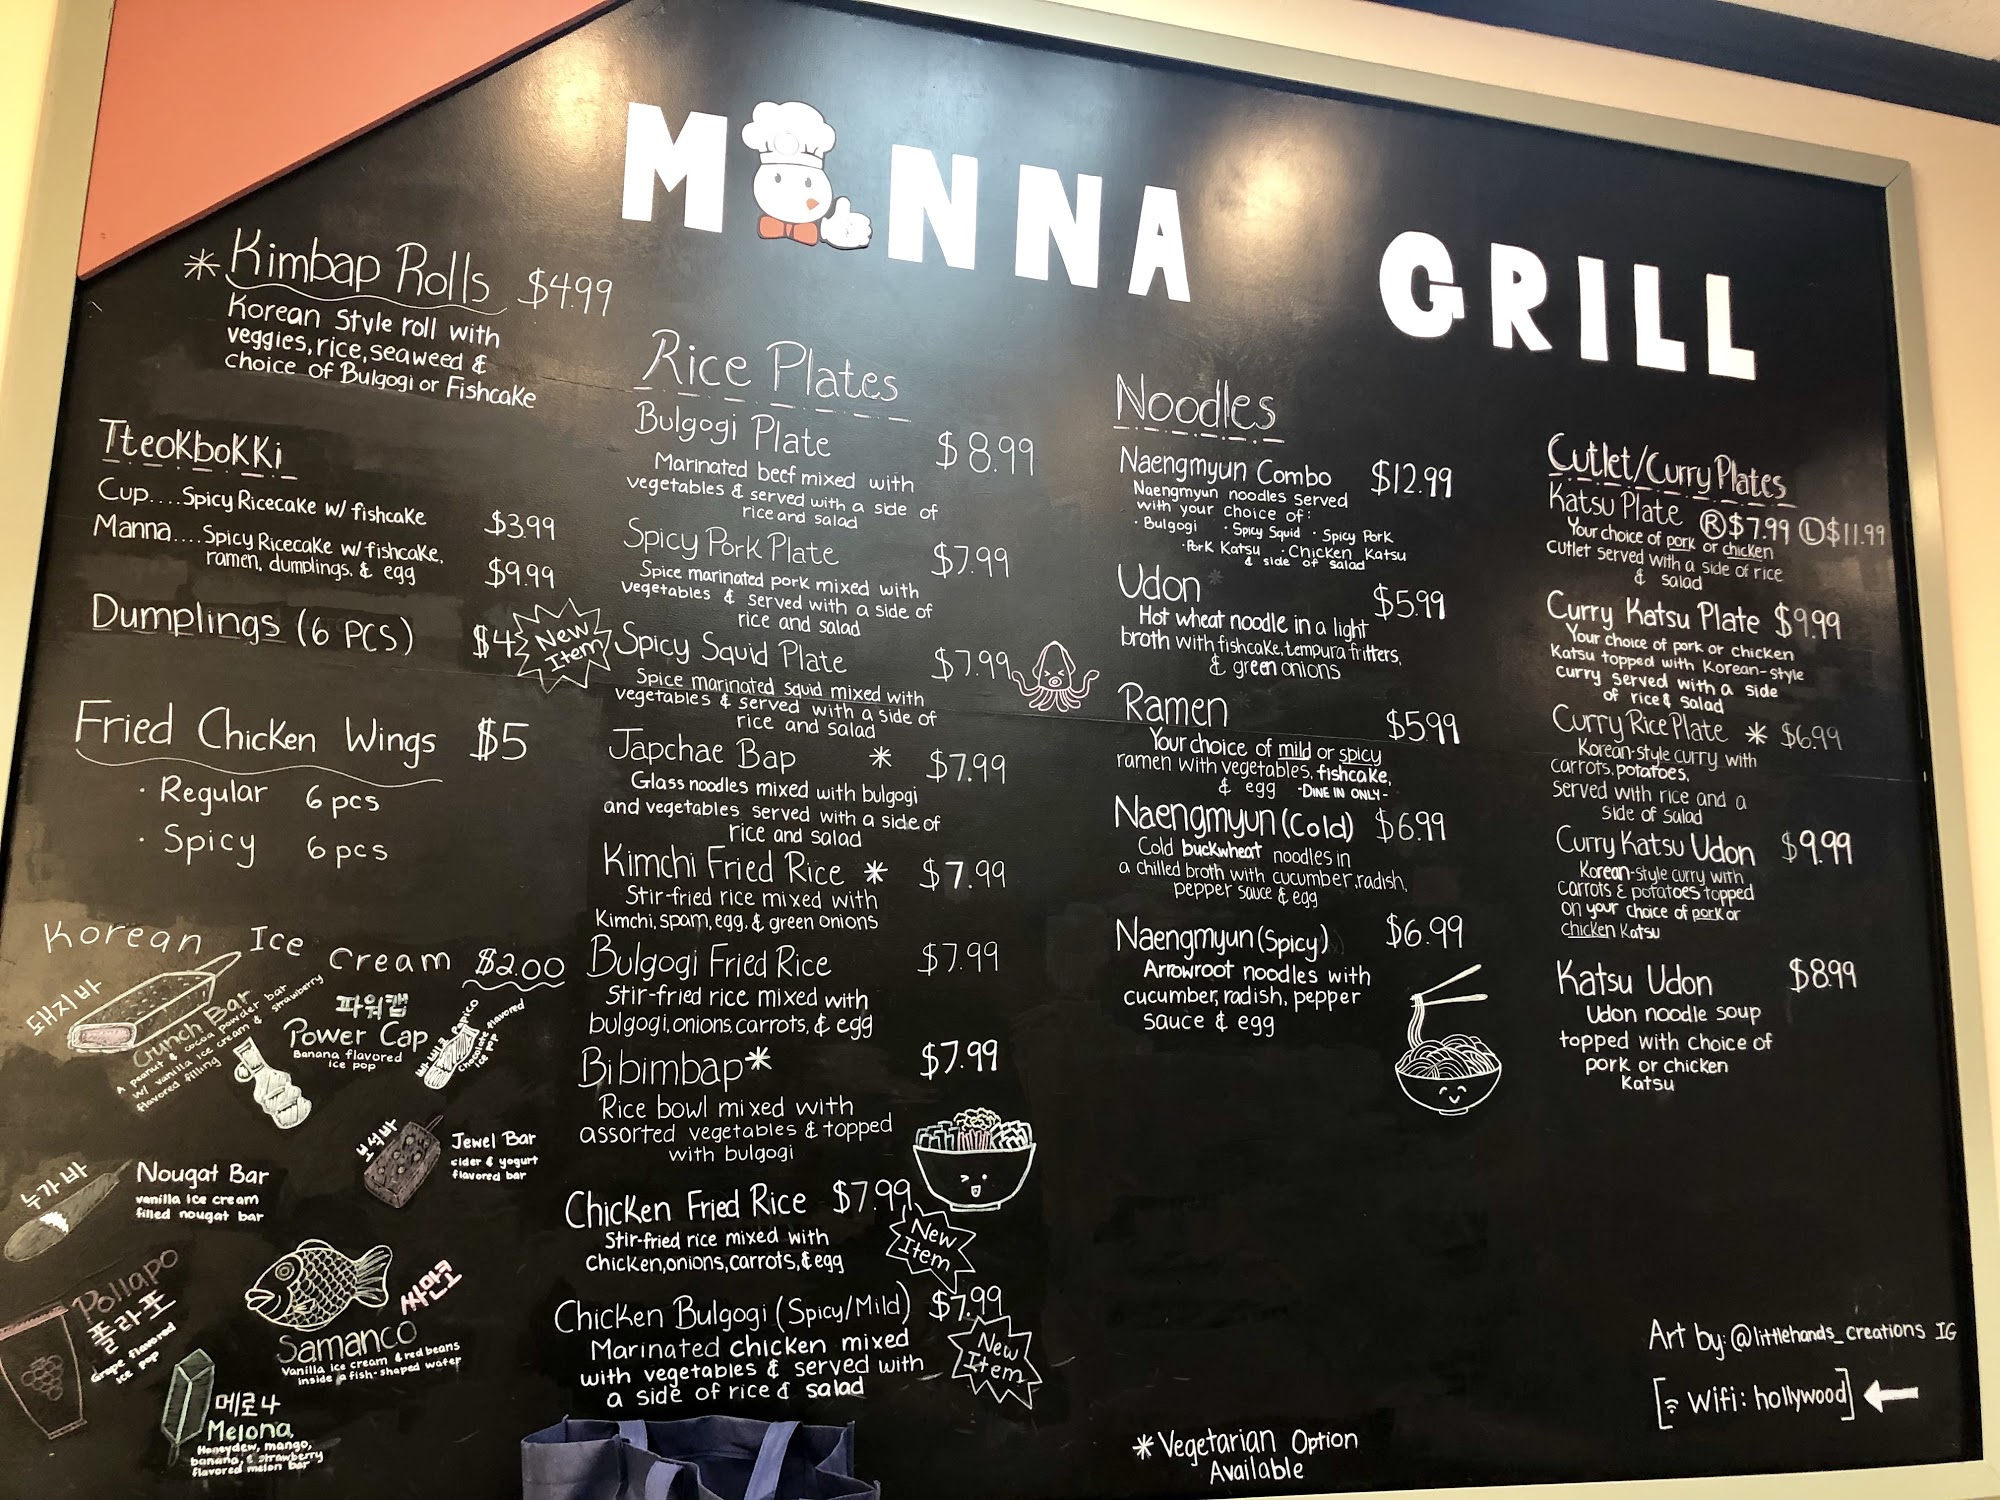 MANNA GRILL
* Kimbap Rolls $4.99
Korean style roll with
veggies, rice, seaweed &
choice of Bulgogi or Fishcake
Tteokbokki
Cup....Spicy Ricecake w/ fishcake $3.99
Manna....Spicy Ricecake w/ fishcake,
ramen, dumplings, & egg $9.99
Dumplings (6 PCS) $4
New
Item
Fried Chicken Wings $5
· Regular 6 pcs
· Spicy 6 pcs
Korean Ice Cream $2.00
돼지바
Crunch Bar
A peanut & cocoa powder bar
w/ vanilla ice cream & strawberry
flavored filling
파워캡
Power Cap
Banana flavored
ice pop
Paprico
Chocolate flavored
ice pop
보석바
Jewel Bar
cider & yogurt
flavored bar
누가바
Nougat Bar
vanilla ice cream
filled nougat bar
Pollapo
폴라포
Grape flavored
ice pop
싸만코
Samanco
Vanilla ice cream & red beans
inside a fish-shaped wafer
메로나
Melona
Honeydew, mango,
banana, & strawberry
flavored melon bar
Rice Plates
Bulgogi Plate $8.99
Marinated beef mixed with
vegetables & served with a side of
rice and salad
Spicy Pork Plate $7.99
Spice marinated pork mixed with
vegetables & served with a side of
rice and salad
Spicy Squid Plate $7.99
Spice marinated squid mixed with
vegetables & served with a side of
rice and salad
Japchae Bap * $7.99
Glass noodles mixed with bulgogi
and vegetables served with a side of
rice and salad
Kimchi Fried Rice * $7.99
Stir-fried rice mixed with
Kimchi, spam, egg, & green onions
Bulgogi Fried Rice $7.99
Stir-fried rice mixed with
bulgogi, onions, carrots, & egg
Bibimbap * $7.99
Rice bowl mixed with
assorted vegetables & topped
with bulgogi
Chicken Fried Rice $7.99
Stir-fried rice mixed with
Chicken, onions, carrots, & egg
New
Item
Chicken Bulgogi (Spicy/Mild) $7.99
Marinated chicken mixed
with vegetables & served with
a side of rice & salad
New
Item
Noodles
Naengmyun Combo $12.99
Naengmyun noodles served
with your choice of:
· Bulgogi · Spicy Squid · Spicy Pork
· Pork Katsu · Chicken Katsu
& side of salad
Udon $5.99
Hot wheat noodle in a light
broth with fishcake, tempura fritters,
& green onions
Ramen $5.99
Your choice of mild or spicy
ramen with vegetables, fishcake,
& egg -DINE IN ONLY-
Naengmyun (Cold) $6.99
Cold buckwheat noodles in
a chilled broth with cucumber, radish,
pepper sauce & egg
Naengmyun (Spicy) $6.99
Arrowroot noodles with
cucumber, radish, pepper
sauce & egg
Cutlet/Curry Plates
Katsu Plate Ⓡ $7.99 Ⓛ $11.99
Your choice of pork or chicken
cutlet served with a side of rice
& salad
Curry Katsu Plate $9.99
Your choice of pork or chicken
Katsu topped with Korean-style
curry served with a side
of rice & salad
Curry Rice Plate * $6.99
Korean-style curry with
carrots, potatoes,
served with rice and a
side of salad
Curry Katsu Udon $9.99
Korean-style curry with
carrots & potatoes topped
on your choice of pork or
chicken Katsu
Katsu Udon $8.99
Udon noodle soup
topped with choice of
pork or chicken
Katsu
Art by: @littlehands_creations IG
[Wifi: hollywood]
* Vegetarian Option
Available